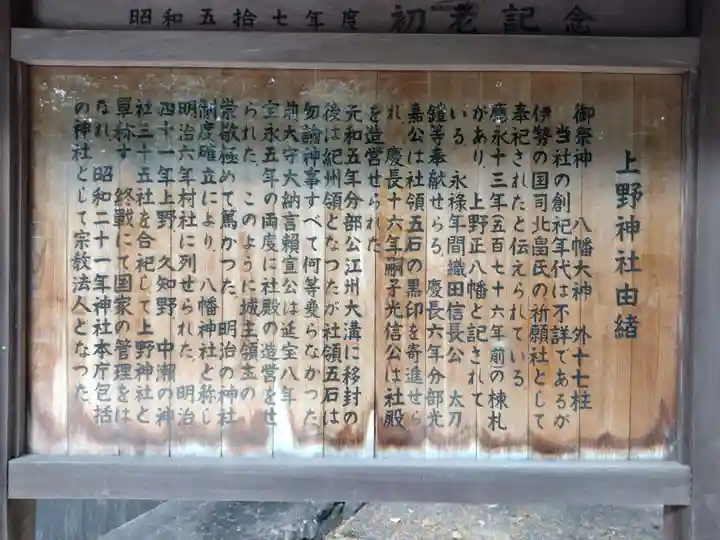 昭和五拾七年度 初老記念
上野神社由緒
御祭神 八幡大神 外十七柱
当社の創祀年代は不詳であるが
伊勢の国司北畠氏の祈願社として
奉祀されたと伝えられている
應永十三年(五百七十六年前)の棟札
があり、上野正八幡と記されて
いる。永禄年間織田信長公 太刀
鎧等奉献せらる。慶長六年分部光
嘉公は社領五石の黒印を寄進せら
れ、慶長十六年嗣子光信公は社殿
を造営せられた
元和五年分部公江州大溝に移封の
後は紀州領となつたが社領五石は
勿論神事すべて何等変らなかつた
前大守大納言頼宣公は延宝八年
宝永五年の両度に社殿の造営をせ
られた。このように城主領主の
崇敬極めて篤かつた。明治の神社
制度確立により、八幡神社と称し
明治六年村社に列せられた。明治
四十一年上野、久知野、中瀬の神
社三十五社を合祀して上野神社と
単称す 終戦にて国家の管理をは
なれ、昭和二十一年神社本庁包括
の神社として宗教法人となつた